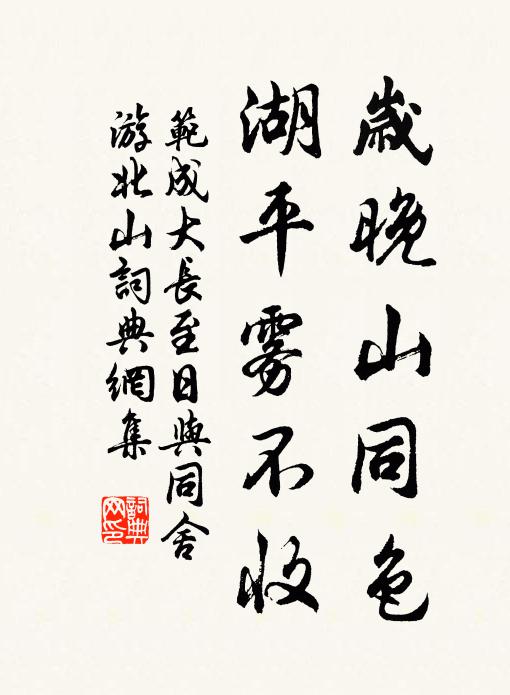 歲晚山同色
湖平霧不收
範成大長至日與同舍
游北山詞典網集
詞典網印